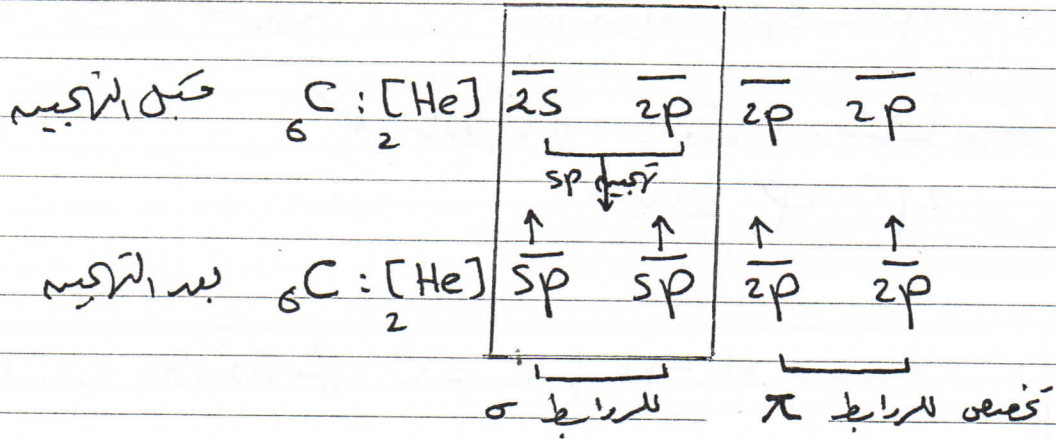 قبل التهجين ₆C : ₂[He] 2s 2p 2p 2p
تهجين sp
↑ ↑ ↑ ↑
بعد التهجين ₆C : ₂[He] sp sp 2p 2p
للروابط σ تخصص للروابط π